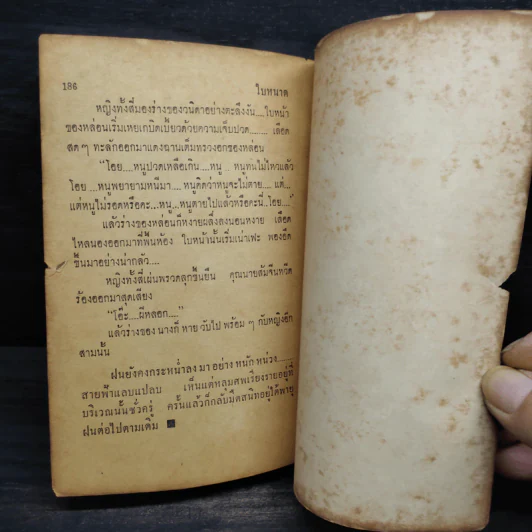 186 ใบหนาด
หญิงทั้งสี่มองร่างของวนิดาอย่างตะลึงงัน....ใบหน้า
ของหล่อนเริ่มเหยเกบิดเบี้ยวด้วยความเจ็บปวด........ เลือด
สด ๆ ทะลักออกมาแดงฉานเต็มทรวงอกของหล่อน
"โอย....หนูปวดเหลือเกิน....หนู.. หนูทนไม่ไหวแล้ว
โอย....หนูพยายามหนีมา.... หนูคิดว่าหนูจะไม่ตาย.... แต่...
แต่หนูไม่รอดหรือคะ...หนู...หนูตายไปแล้วหรือคะนี่..โอย...."
แล้วร่างของหล่อนก็หงายผลึ่งลงนอนหงาย เลือด
ไหลนองออกมาที่พื้นห้อง ใบหน้านั้นเริ่มเน่าเฟะ พองอืด
ขึ้นมาอย่างน่ากลัว....
หญิงทั้งสี่เผ่นพรวดลุกขึ้นยืน คุณนายสัมจีนหวีด
ร้องออกมาสุดเสียง
"โอ๊ะ....ผีหลอก...."
แล้วร่างของ นางก็ หาย วับไป พร้อม ๆ กับหญิงอีก
สามนั้น
ฝนยังคงกระหน่ำลง มา อย่าง หนัก หน่วง.......
สายฟ้าแลบแปลบ เห็นแต่หลุมศพเรียงรายอยู่ที่
บริเวณนั้นชั่วครู่ ครั้นแล้วก็กลับมืดสนิทอยู่ใต้พายุ
ฝนต่อไปตามเดิม